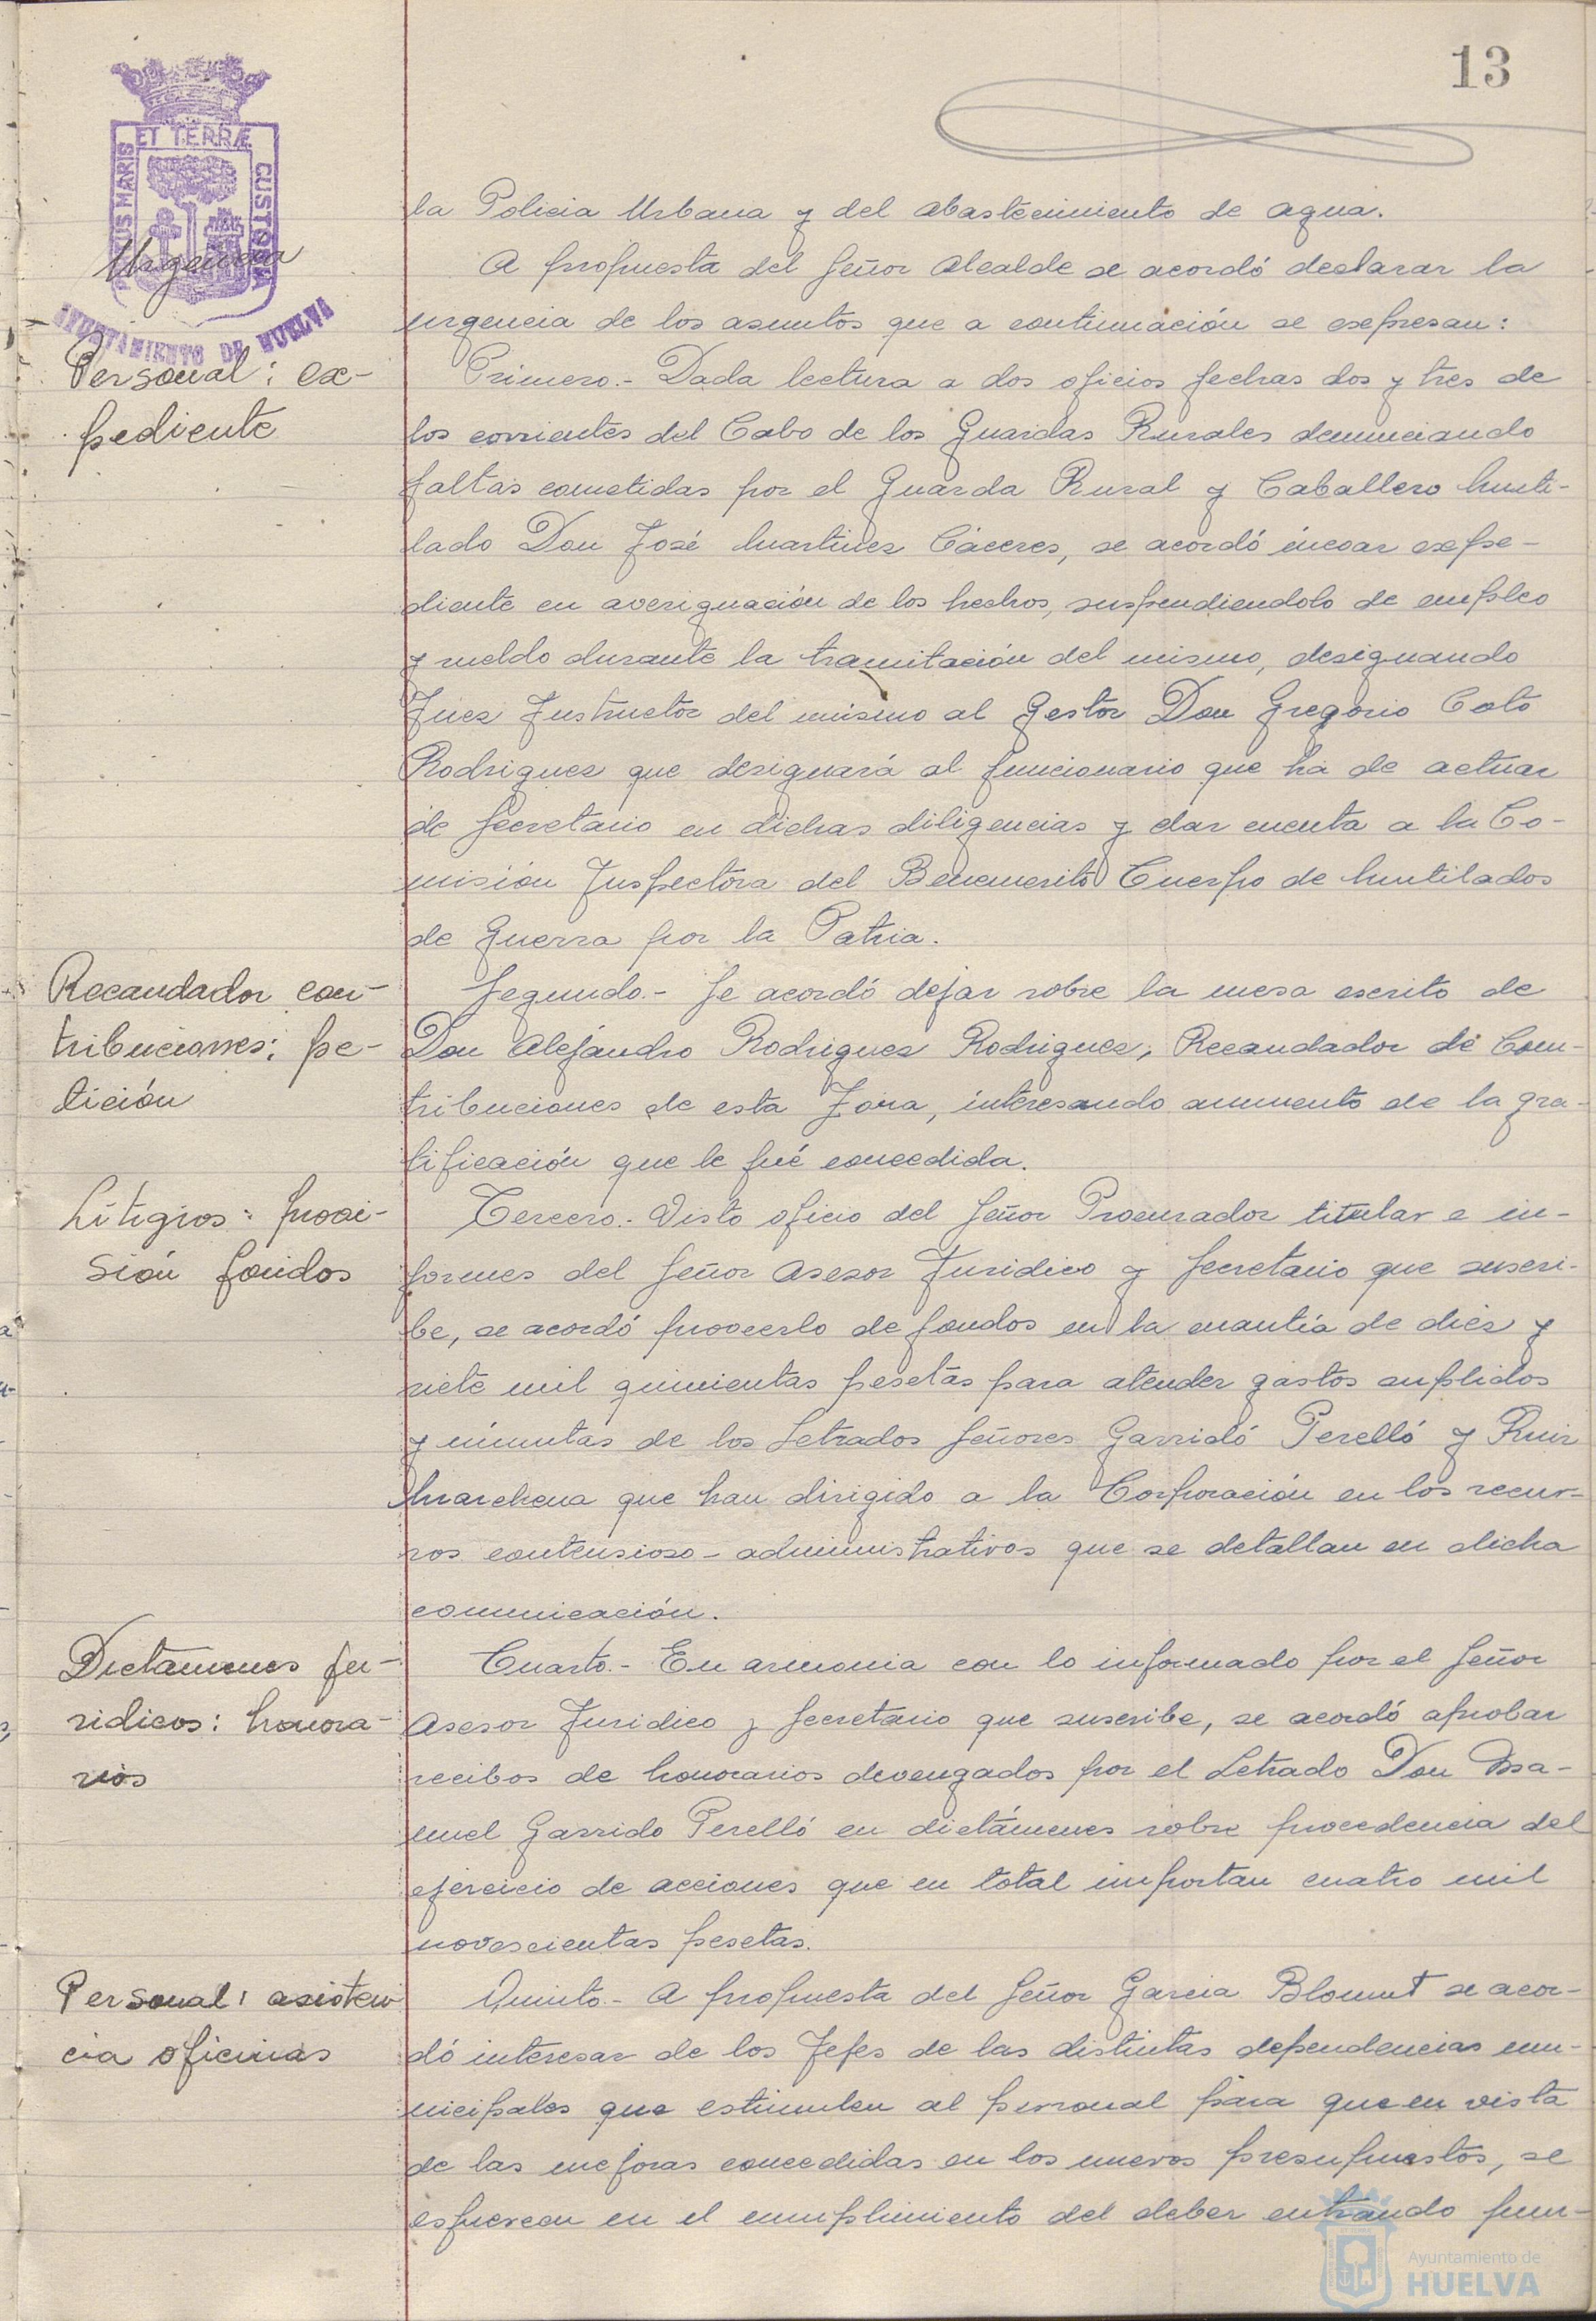 13
PORTUS MARIS ET TERRÆ CUSTODIA
AYUNTAMIENTO DE HUELVA
la Policia Urbana y del abastecimiento de agua.
Urgencia
A propuesta del Señor Alcalde se acordó declarar la
urgencia de los asuntos que a continuación se expresan:
Personal: ex-
pediente
Primero.- Dada lectura a dos oficios fechas dos y tres de
los corrientes del Cabo de los Guardas Rurales denunciando
faltas cometidas por el Guarda Rural y Caballero Muti-
lado Don José Martinez Cáceres, se acordó incoar expe-
diente en averiguación de los hechos, suspendiendolo de empleo
y sueldo durante la tramitación del mismo, designando
Juez Instructor del mismo al Gestor Don Gregorio Coto
Rodriguez que designará al funcionario que ha de actuar
de Secretario en dichas diligencias y dar cuenta a la Co-
misión Inspectora del Benemerito Cuerpo de Mutilados
de Guerra por la Patria.
Recaudador con-
tribuciones: pe-
tición
Segundo.- Se acordó dejar sobre la mesa escrito de
Don Alejandro Rodriguez Rodriguez, Recaudador de Con-
tribuciones de esta Zona, interesando aumento de la gra-
tificación que le fué concedida.
Litigios: provi-
sión fondos
Tercero.- Visto oficio del Señor Procurador titular e in-
formes del Señor Asesor Juridico y Secretario que suscri-
be, se acordó proveerlo de fondos en la cuantía de diez y
siete mil quinientas pesetas para atender gastos suplidos
y minutas de los Letrados Señores Garridó Perelló y Ruiz
Marchena que han dirigido a la Corporación en los recur-
sos contensioso-administrativos que se detallan en dicha
comunicación.
Dictámenes ju-
ridicos: honora-
rios
Cuarto.- En armonia con lo informado por el Señor
Asesor Juridico y Secretario que suscribe, se acordó aprobar
recibos de honorarios devengados por el Letrado Don Ma-
nuel Garrido Perelló en dictámenes sobre procedencia del
ejercicio de acciones que en total importan cuatro mil
novescientas pesetas.
Personal: asisten
cia oficinas
Quinto.- A propuesta del Señor Garcia Blount se acor-
dó interesar de los Jefes de las distintas dependencias mu-
nicipales que estimulen al personal para que en vista
de las mejoras concedidas en los nuevos presupuestos, se
esfuercen en el cumplimiento del deber entrando pun-
Ayuntamiento de
HUELVA